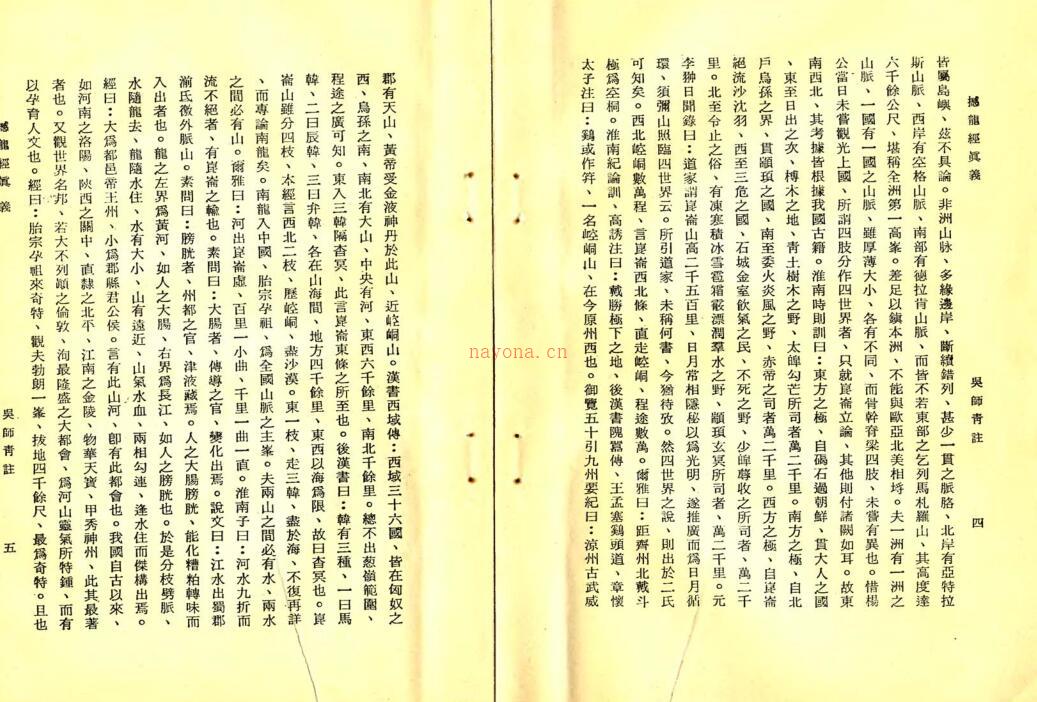 撼龍經眞義　吳師靑註　四
皆屬島嶼、茲不具論。非洲山脉、多緣邊岸、斷續錯列、甚少一貫之脈胳、北岸有亞特拉
斯山脈、西岸有空格山脈、南部有德拉肯山脈、而皆不若東部之乞列馬札羅山、其高度達
六千餘公尺、堪稱全洲第一高峯。差足以鎮本洲、不能與歐亞北美相埒。夫一洲有一洲之
山脈、一國有一國之山脈、雖厚薄大小、各有不同、而骨幹脊梁四肢、未嘗有異也。惜楊
公當日未嘗觀光上國、所謂四肢分作四世界者、只就崑崙立論、其他則付諸闕如耳。故東
南西北、其考據皆根據我國古籍。淮南時則訓曰：東方之極、自碣石過朝鮮、貫大人之國
、東至日出之次、榑木之地、靑土樹木之野、太皥勾芒所司者萬二千里。南方之極、自北
戶烏孫之界、貫顓頊之國、南至委火炎風之野、赤帝之司者萬二千里。西方之極、自崑崙
絕流沙沈羽、西至三危之國、石城金室飲氣之民、不死之野、少皥蓐收之所司者、萬二千
里。北至令止之俗、有凍寒積冰雪雹霜霰漂潤羣水之野、顓頊玄冥所司者、萬二千里。元
李翀日聞錄曰：道家謂崑崙山高二千五百里、日月常相隱秘以爲光明、遂推廣而爲日月循
環、須彌山照臨四世界云。所引道家、未稱何書、今猶待攷。然四世界之說、則出於二氏
可知矣。西北崆峒數萬程、言崑崙西北條、直走崆峒、程途數萬。爾雅曰：距齊州北戴斗
極爲空桐。淮南紀論訓、高誘注曰：戴勝極下之地、後漢書隗囂傳、王孟塞鷄頭道、章懷
太子注曰：鷄或作筓、一名崆峒山、在今原州西也。御覽五十引九州要紀曰：涼州古武威
郡有天山、黃帝受金液神丹於此山、近崆峒山。漢書西域傳：西域三十六國、皆在匈奴之
西、烏孫之南、南北有大山、中央有河、東西六千餘里、南北千餘里。總不出葱嶺範圍、
程途之廣可知。東入三韓隔杳冥、此言崑崙東條之所至也。後漢書曰：韓有三種、一曰馬
韓、二曰辰韓、三曰弁韓、各在山海間、地方四千餘里、東西以海爲限、故曰杳冥也。崑
崙山雖分四枝、本經言西北二枝、歷崆峒、盡沙漠。東一枝、走三韓、盡於海、不復再詳
、而專論南龍矣。南龍入中國、胎宗孕祖、爲全國山脈之主峯。夫兩山之間必有水、兩水
之間必有山。爾雅曰：河出崑崙虛、百里一小曲、千里一曲一直。淮南子曰：河水九折而
流不絕者、有崑崙之輸也。素問曰：大腸者、傳導之官、變化出焉。說文曰：江水出蜀郡
湔氏徼外脈山。素問曰：膀胱者、州都之官、津液藏焉。人之大腸膀胱、能化糟粕轉味而
入出者也。龍之左界爲黃河、如人之大腸、右界爲長江、如人之膀胱也。於是分枝劈脈、
水隨龍去、龍隨水住、水有大小、山有遠近、山氣水血、兩相勾連、逢水住而傑構出焉。
經曰：大爲都邑帝王州、小爲郡縣君公侯。言有此山河、卽有此都會也。我國自古以來、
如河南之洛陽、陝西之關中、直隸之北平、江南之金陵、物華天寶、甲秀神州、此其最著
者也。又觀世界名邦、若大不列顛之倫敦、洵最隆盛之大都會、爲河山靈氣所特鍾、而有
以孕育人文也。經曰：胎宗孕祖來奇特、觀夫勃朗一峯、拔地四千餘尺、最爲奇特。且也
撼龍經眞義　吳師靑註　五
nayona.cn